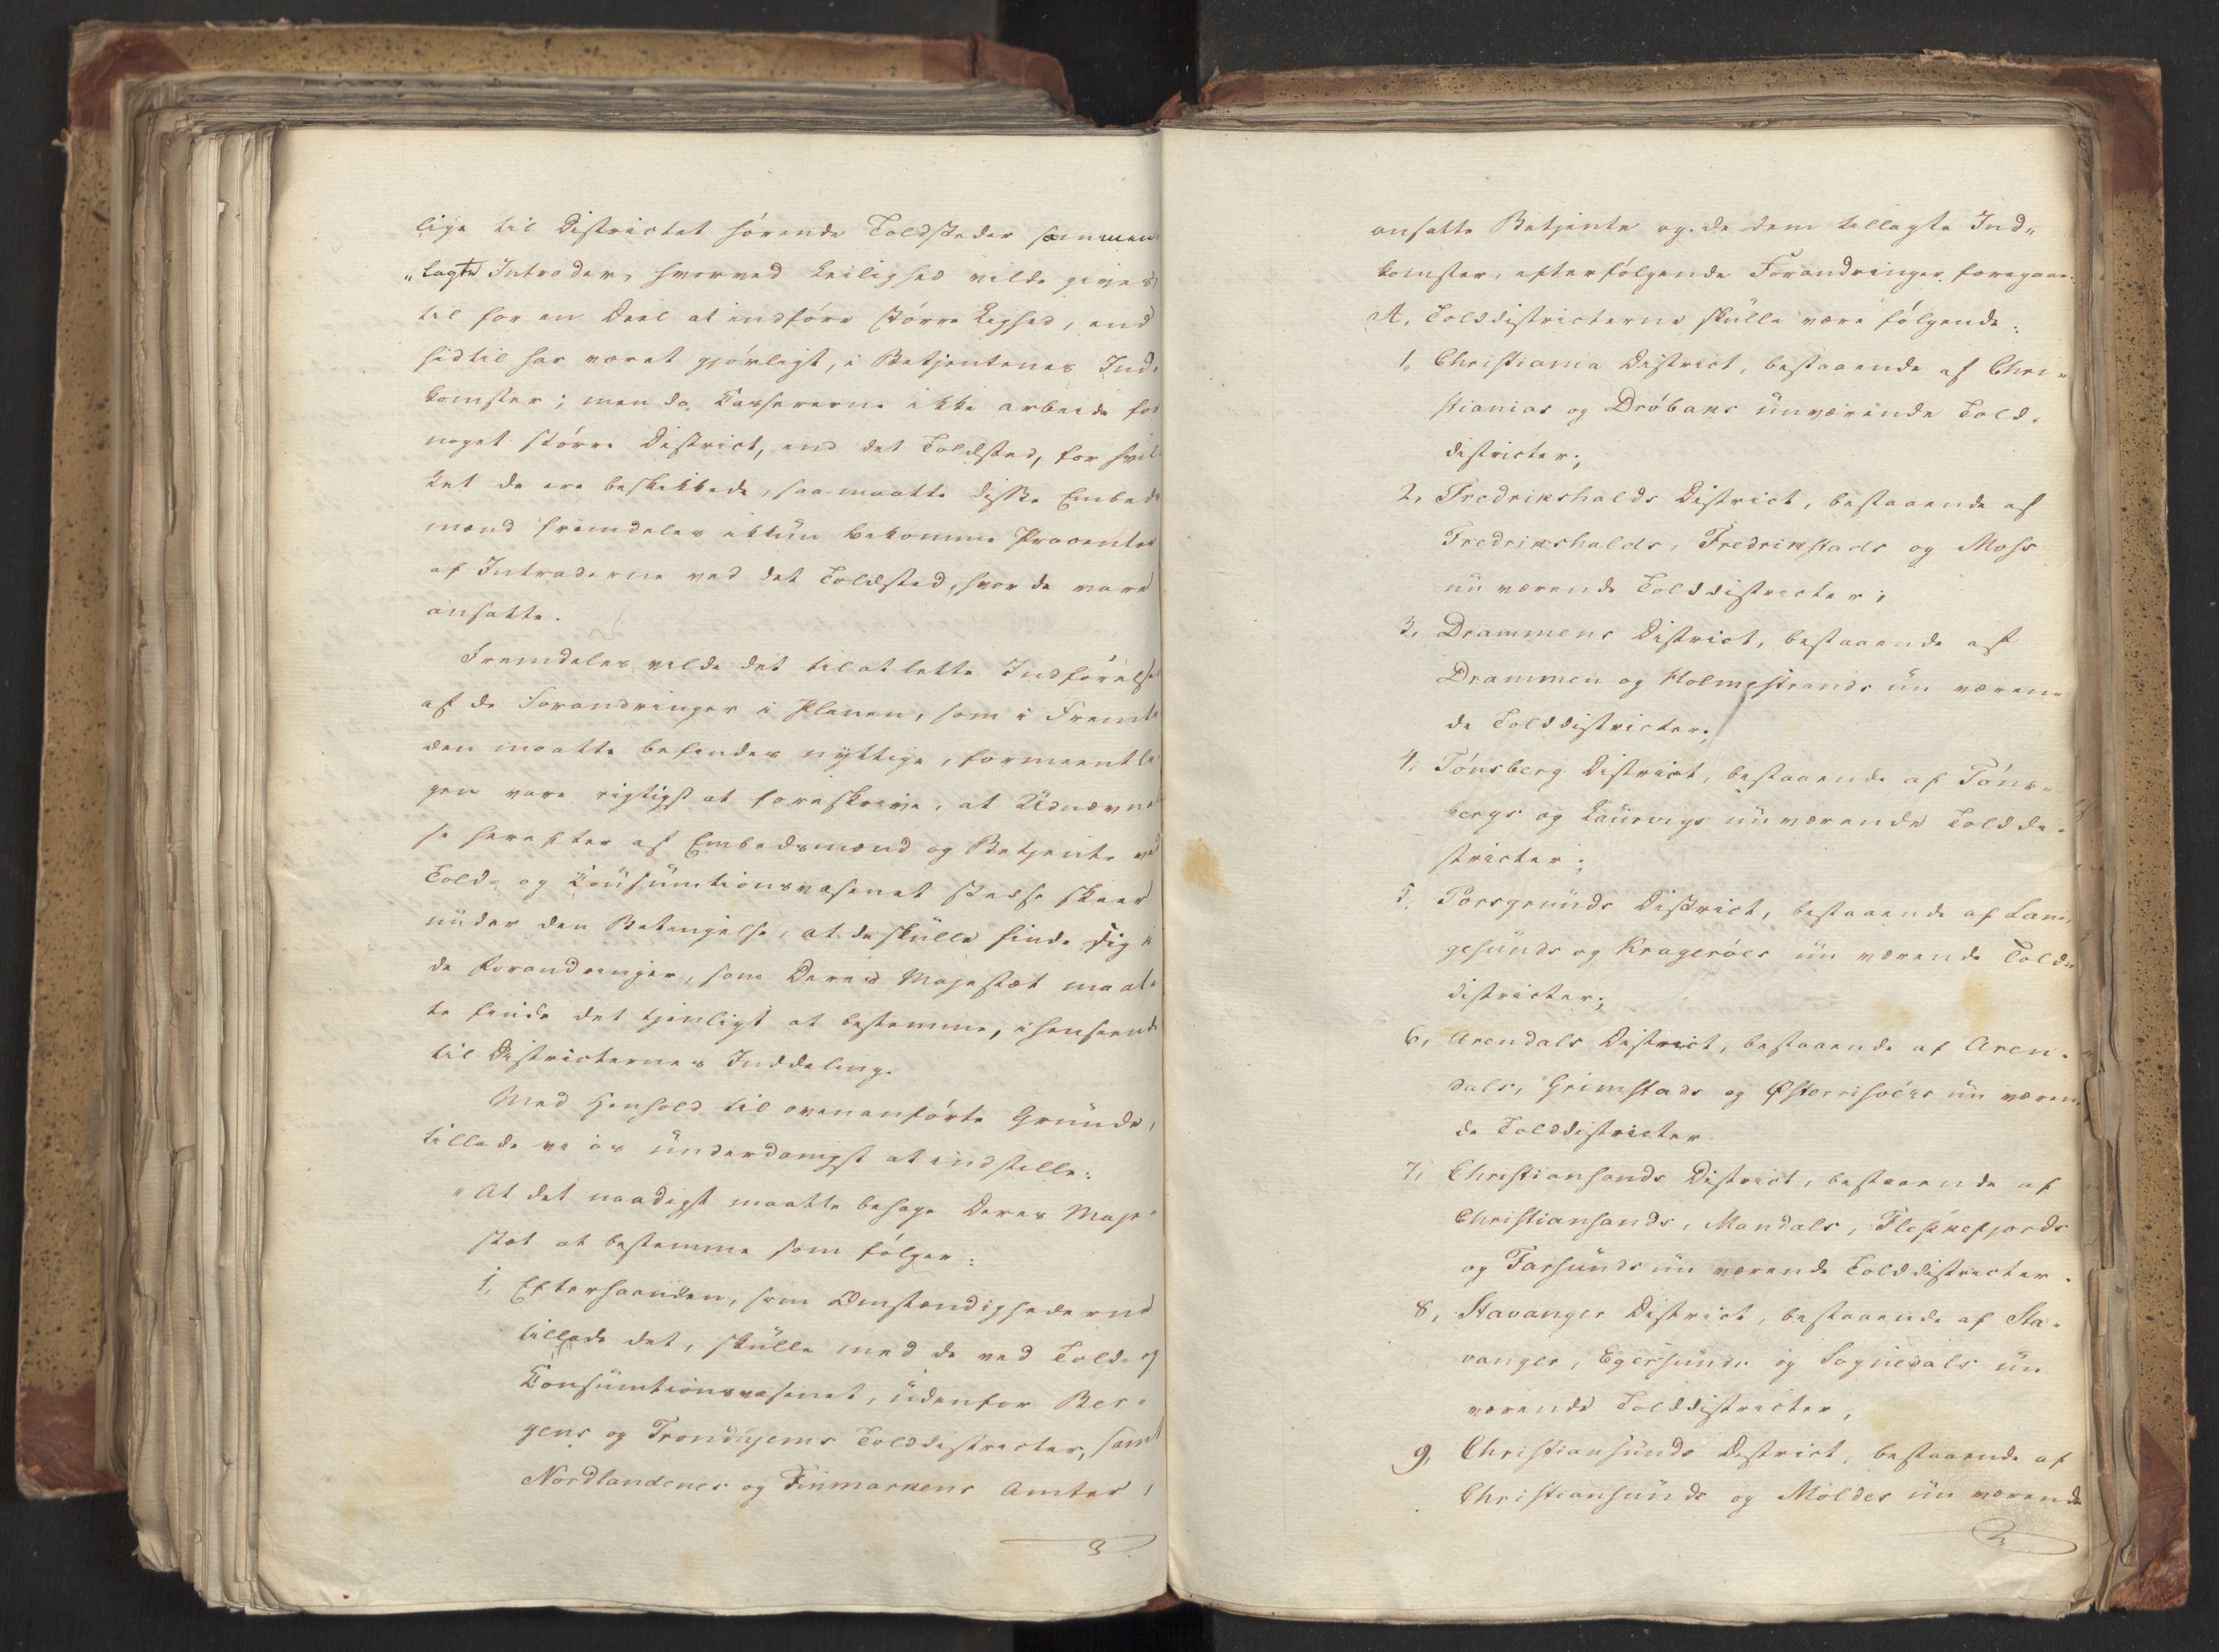 lige til Districtet hörende Toldsteder sammen
„lagte Intrader, hvorved Leilighed vilde gives
til for en Deel at indföre större Lighed, end
hidtil har været gjörligt, i Betjentenes Ind„
komster; men da Casserererne ikke arbeide for
noget större District, end det Toldsted, for hvil„
ket de ere beskikkede, saa maatte disse Embeds
mænd fremdeles ikkun bekomme Procenter
af Intraderne ved det Toldsted, hvor de vare
ansatte.
Fremdeles vilde det til at lette Indförelsen
af de Forandringer i Planen, som i Fremti
den maatte befindes nyttige, formeentli
gen være rigtigst at foreskrive, at Udnævnel
se herefter af Embedsmænd og Betjente ved
Told- og Consumtionsvæsenet stedse skeer
under den Betingelse, at de skulle finde sig i
de Forandringer, som Deres Majestæt maat„
te finde det tjenligt at bestemme, i henseende
til Districternes Inddeling.
Med Henhold til ovenanförte Grunde,
tillade vi os underdanigst at indstille:
„At det naadigst maatte behage Deres Maje„
stæt at bestemme som fölger:
1, Efterhaanden, som Omstændighederne
tillade det, skulle med de ved Told- og
Consumtionsvæsenet, udenfor Ber„
gens og Trondhjems Tolddistricter, samt
Nordlandenes og Finmarkens Amter,
ansatte Betjente og de dem tillagte Ind„
komster, efterfölgende Forandringer foregaae:
A, Tolddistricterne skulle være fölgende:
1, Christiania District, bestaaende af Chri„
stianias og Dröbaks nuværende Told„
districter;
2, Fredrikshalds District, bestaaende af
Fredrikshalds, Fredrikstads og Moss
nu værende Tolddistricter;
3, Drammens District, bestaaende af
Drammen og Holmestrands nu væren„
de Tolddistricter;
4, Tönsberg District, bestaaende af Töns„
bergs og Laurvigs nuværende Told di„
stricter;
5, Porsgrunds District, bestaaende af Lan„
gesunds og Krageröes nu værende Told„
districter;
6, Arendals District, bestaaende af Aren„
dals, Grimstads og Østerrisöers nu væren„
de Tolddistricter
7, Christiansands District, bestaaende af
Christiansands, Mandals, Flekkefjords
og Farsunds nu værende Tolddistricter.
8, Stavanger District, bestaaende af Sta„
vanger, Egersunds og Sognedals nu
værende Tolddistricter,
9, Christiansunds District, bestaaende af
Christiansunds og Moldes nu værende